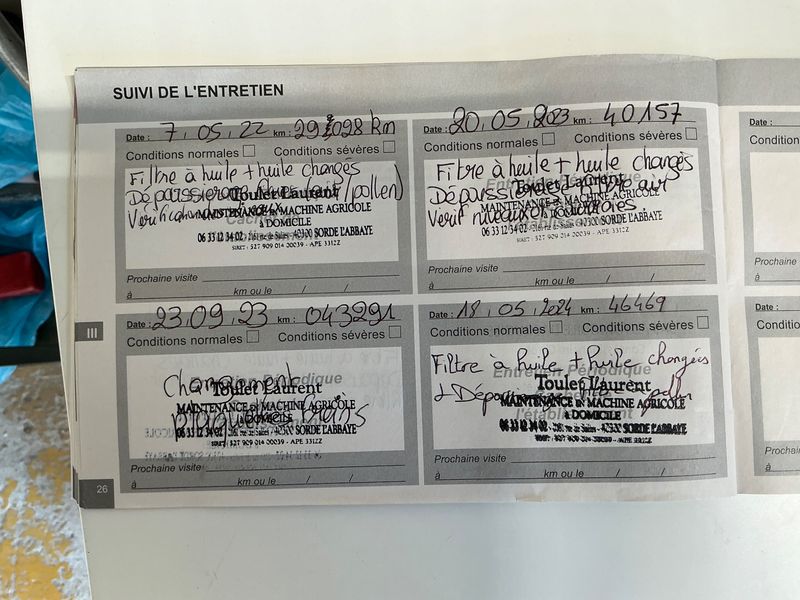 SUIVI DE L'ENTRETIEN
Date : 7.05.22 km : 29098 km
Conditions normales Conditions sévères
Filtre à huile + huile changés
Dépoussierage (pollen)
Toulet Laurent
MAINTENANCE DE MACHINE AGRICOLE
à DOMICILE
06 33 12 34 02 40300 SORDE L'ABBAYE
SIRET : 527 909 014 00039 - APE 3312Z
Prochaine visite
à km ou le / /
Date : 20.05.2023 km : 40157
Conditions normales Conditions sévères
Filtre à huile + huile changés
Dépoussierage filtre air
Verif niveaux
Toulet Laurent
MAINTENANCE DE MACHINE AGRICOLE
à DOMICILE
06 33 12 34 02 40300 SORDE L'ABBAYE
SIRET : 527 909 014 00039 - APE 3312Z
Prochaine visite
à km ou le / /
Date : 23.09.23 km : 043291
Conditions normales Conditions sévères
Changement
plaquettes freins
Toulet Laurent
MAINTENANCE DE MACHINE AGRICOLE
à DOMICILE
06 33 12 34 02 40300 SORDE L'ABBAYE
SIRET : 527 909 014 00039 - APE 3312Z
Prochaine visite
à km ou le / /
Date : 18.05.2024 km : 46469
Conditions normales Conditions sévères
Filtre à huile + huile changées
Entretien Périodique
Toulet Laurent
MAINTENANCE DE MACHINE AGRICOLE
à DOMICILE
06 33 12 34 02 40300 SORDE L'ABBAYE
SIRET : 527 909 014 00039 - APE 3312Z
Prochaine visite
à km ou le / /
III
26
Date :
Conditions
Prochaine
à
Date :
Conditions
Prochaine
à